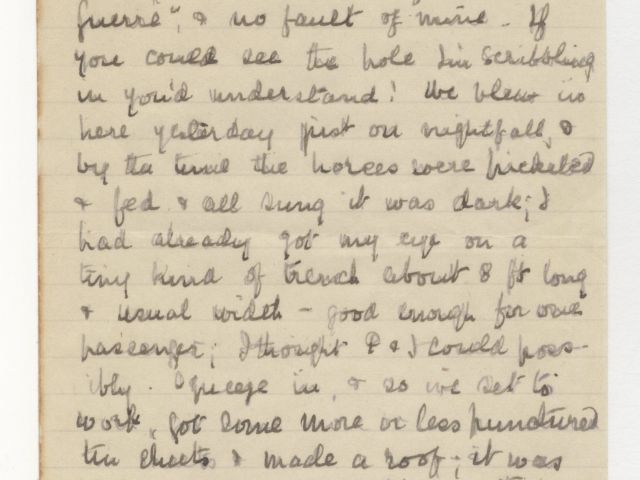 guerre", & no fault of mine. If
you could see the hole I'm scribbling
in you'd understand! We blew in
here yesterday just on nightfall, &
by the time the horses were picketed
& fed & all sung it was dark; I
had already got my eye on a
tiny kind of trench about 8 ft long
& usual width - good enough for one
passenger; I thought P & I could poss-
ibly squeeze in, & so we set to
work, got some more or less punctured
tin sheets & made a roof; it was